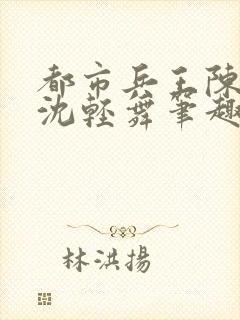 都市兵王陳
沈輕舞筆趣
林洪揚